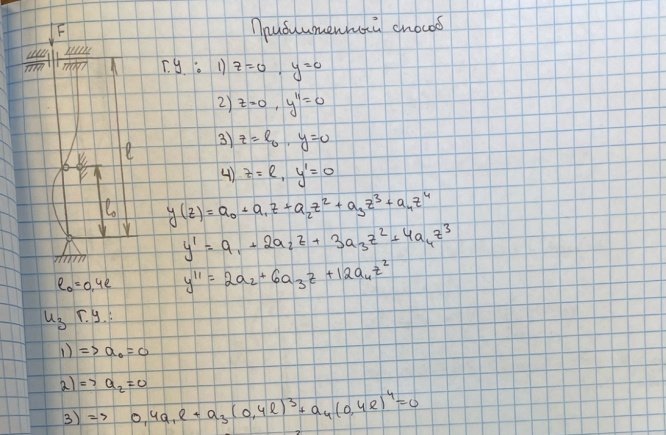 Приближенный способ
F
Г.У.: 1) z=0, y=0
2) z=0, y''=0
3) z=l₀, y=0
4) z=l, y'=0
l
l₀
y(z) = a₀ + a₁z + a₂z² + a₃z³ + a₄z⁴
y' = a₁ + 2a₂z + 3a₃z² + 4a₄z³
y'' = 2a₂ + 6a₃z + 12a₄z²
l₀=0,4l
Из Г.У.:
1) => a₀=0
2) => a₂=0
3) => 0,4a₁l + a₃(0,4l)³ + a₄(0,4l)⁴=0